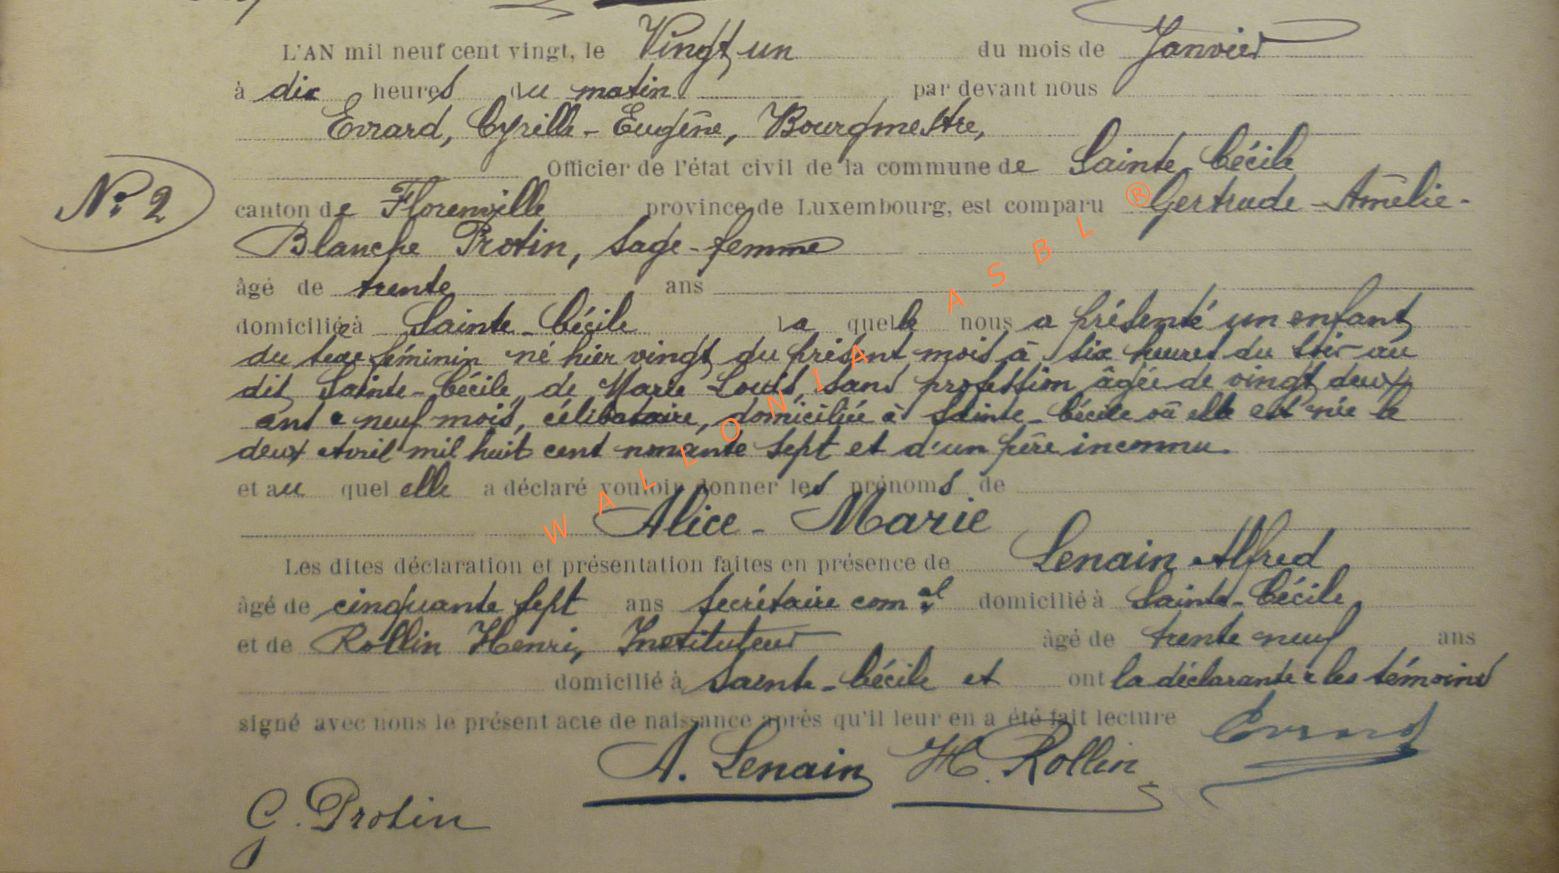 L'AN mil neuf cent vingt, le Vingt un du mois de Janvier
à dix heures du matin par devant nous
Evrard, Cyrille - Eugène, Bourgmestre,
Officier de l'état civil de la commune de Sainte Cécile
N° 2
canton de Florenville province de Luxembourg, est comparu Gertrude - Amélie -
Blanche Protin, sage-femme
âgé de trente ans
domiciliée à Sainte-Cécile la quelle nous a présenté un enfant
du sexe féminin né hier vingt du présent mois à six heures du soir au
dit Sainte-Cécile de Marie Louis, sans profession âgée de vingt deux
ans & neuf mois, célibataire, domiciliée à Sainte-Cécile où elle est née le
deux Avril mil huit cent nonante sept et d'un père inconnu.
et au quel elle a déclaré vouloir donner les prénoms de
Alice - Marie
Les dites déclaration et présentation faites en présence de Lenain Alfred
âgé de cinquante sept ans secrétaire com.al domicilié à Sainte-Cécile
et de Rollin Henri, Instituteur âgé de trente neuf ans
domicilié à Sainte-Cécile et ont la déclarante & les témoins
signé avec nous le présent acte de naissance après qu'il leur en a été fait lecture Evrard
A. Lenain H. Rollin
G. Protin
WALLONIA ASBL ®